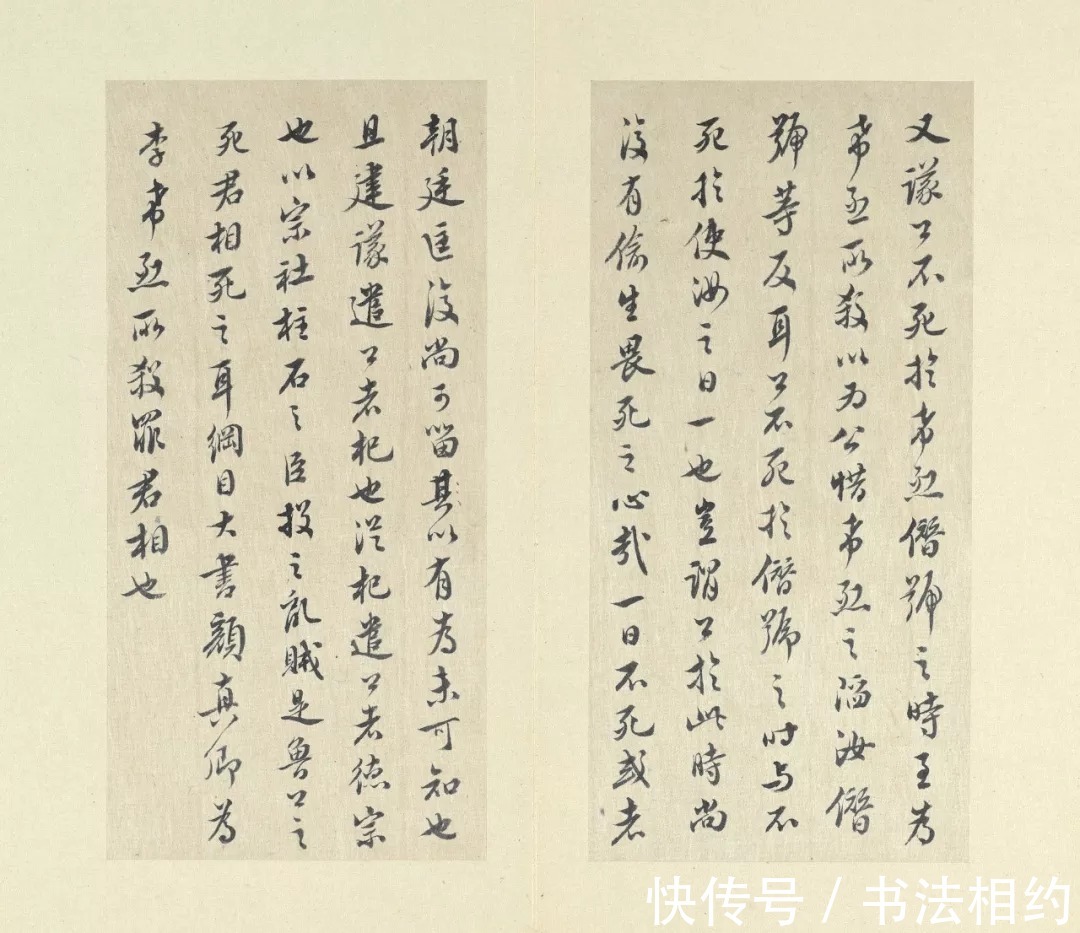 又議公不死於希烈僭號之時至為
希烈所殺以為公惜希烈之陷汝僭
號等反耳公不死於僭號之時与不
死於使汝之日一也豈謂公於此時尚
復有偷生畏死之心哉一日不死或者
朝廷匡復尚可留其以有為未可知也
且建議遣公者杞也從杞遣公者德宗
也以宗社柱石之臣投之亂賊是魯公之
死君相死之耳綱目大書顏真卿為
李希烈所殺罪君相也
快传号 / 书法相约